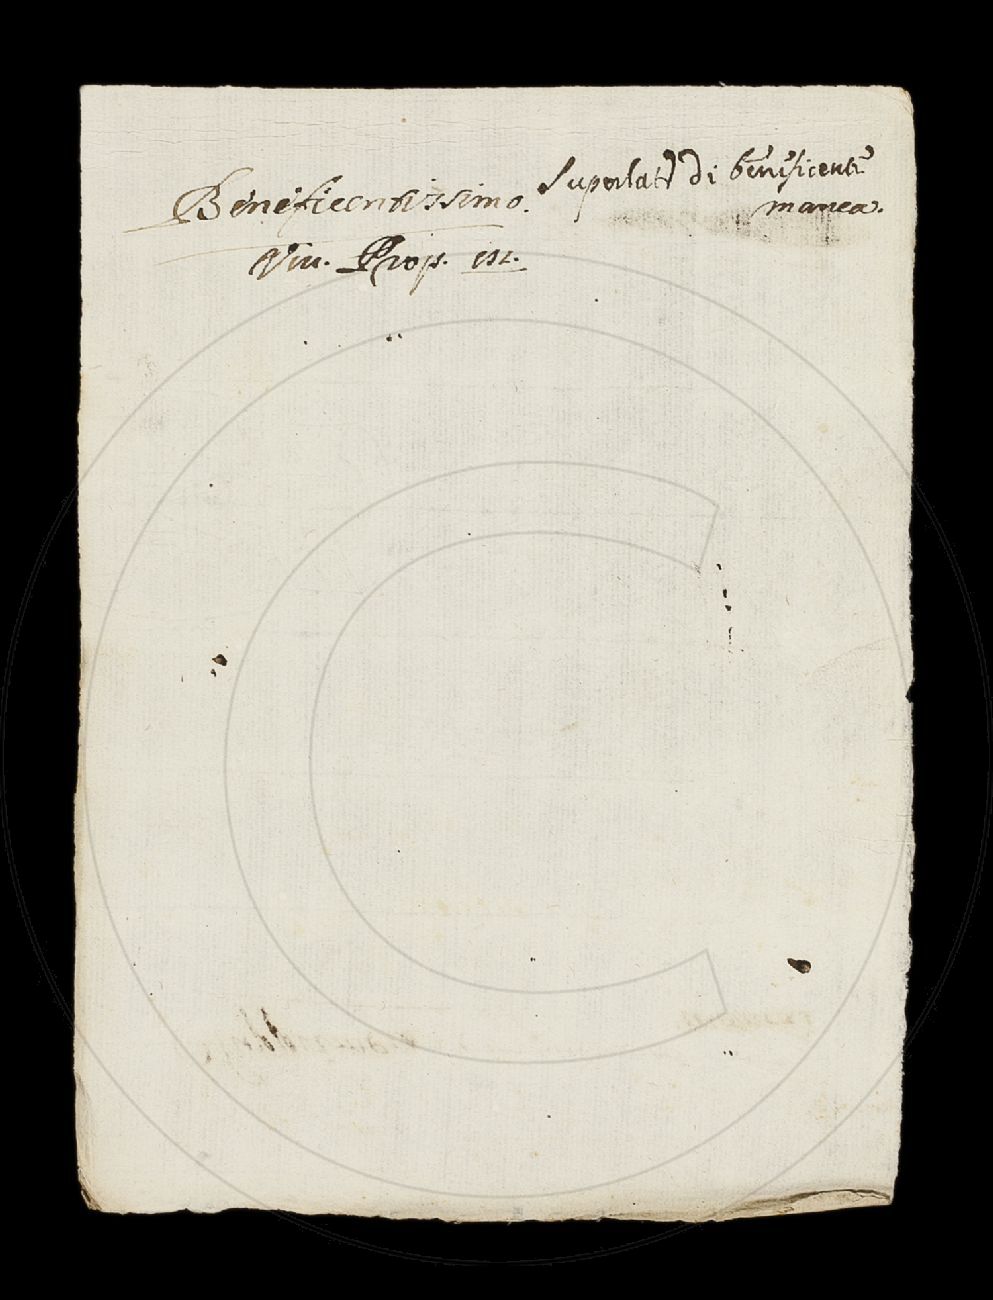 Beneficentissimo. Superlat.º di beneficente
manca.
Viv. Prop. 152.